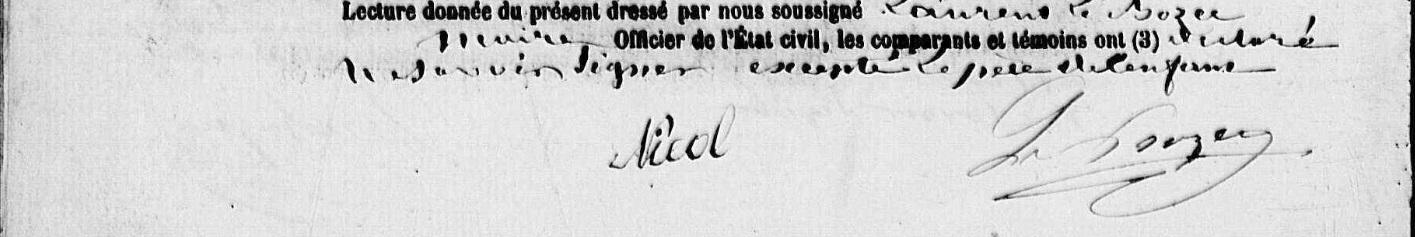 Lecture donnée du présent dressé par nous soussigné Laurent le Bozec
maire Officier de l'État civil, les comparants et témoins ont (3) declaré
ne savoir signer excepté le père de l'enfant
Nicol Le Bozec